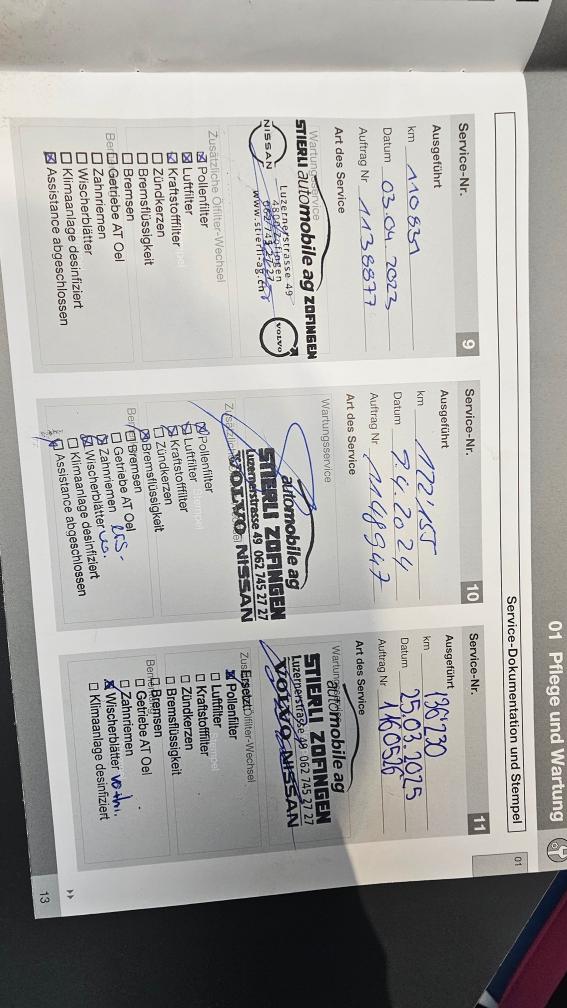 01 Pflege und Wartung
Service-Dokumentation und Stempel
01
Service-Nr. 9
Ausgeführt
km 110831
Datum 03.04 2023
Auftrag Nr 1138877
Art des Service
Wartungsservice
STIERLI automobile ag ZOFINGEN
Luzernerstrasse 49
4800 Zofingen
062 745 27 27
www.stierli-ag.ch
NISSAN
VOLVO
Zusätzliche Ölfilter-Wechsel
☒ Pollenfilter
☒ Luftfilter
☒ Kraftstofffilter
☐ Zündkerzen
☐ Bremsflüssigkeit
☐ Bremsen
☐ Getriebe AT Oel
☐ Zahnriemen
☐ Wischerblätter
☐ Klimaanlage desinfiziert
☒ Assistance abgeschlossen
Service-Nr. 10
Ausgeführt
km 122'155
Datum 9.4.2024
Auftrag Nr 1148947
Art des Service
Wartungsservice
automobile ag
STIERLI ZOFINGEN
Luzernerstrasse 49 062 745 27 27
VOLVO NISSAN
☒ Pollenfilter
☒ Luftfilter
☒ Kraftstofffilter
☐ Zündkerzen
☒ Bremsflüssigkeit
☐ Bremsen
☐ Getriebe AT Oel
☒ Zahnriemen
☒ Wischerblätter
☐ Klimaanlage desinfiziert
Assistance abgeschlossen
Service-Nr. 11
Ausgeführt
km 136'230
Datum 25.03.2025
Auftrag Nr
Art des Service
automobile ag
STIERLI ZOFINGEN
Luzernerstraße 49 062 745 27 27
VOLVO NISSAN
Ersetzt
☒ Pollenfilter
☐ Luftfilter
☐ Kraftstofffilter
☐ Zündkerzen
☐ Bremsflüssigkeit
☐ Bremsen
☐ Getriebe AT Oel
☐ Zahnriemen
☒ Wischerblätter
☐ Klimaanlage desinfiziert
13